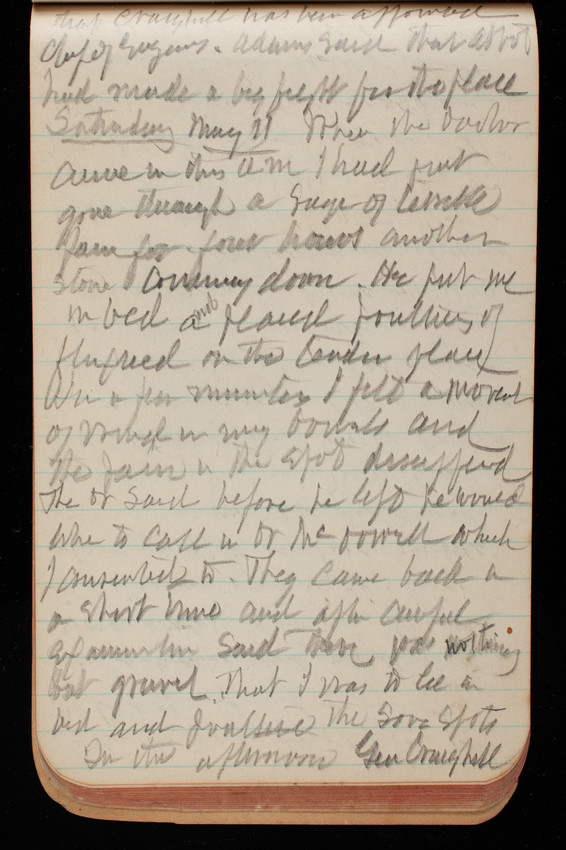 that Craighill has been appointed
Chf of Engrs. Adams said that Abbot
had made a big fight for the place
Saturday May 11 When the Doctor
came in this am I had just
gone through a surge of terrible
pain for four hours another
stone coming down. He put me
in bed and placed poultices of
flaxseed on the tender place
In a few minutes I felt a movent
of wind in my bowels and
the pain in the spot disappeared
The Dr said before he left he would
like to call in Dr McDowell which
I consented to. They came back in
a short time and after careful
examination said there was nothing
but gravel. That I was to lie in
bed and poultice the sore spots
In the afternoon Gen Craighill